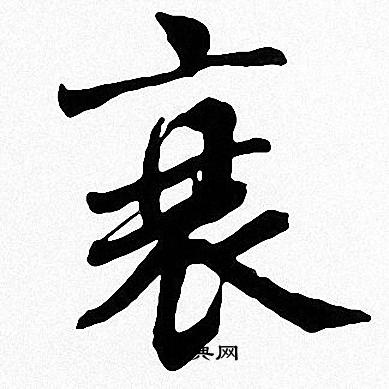 衰
典网